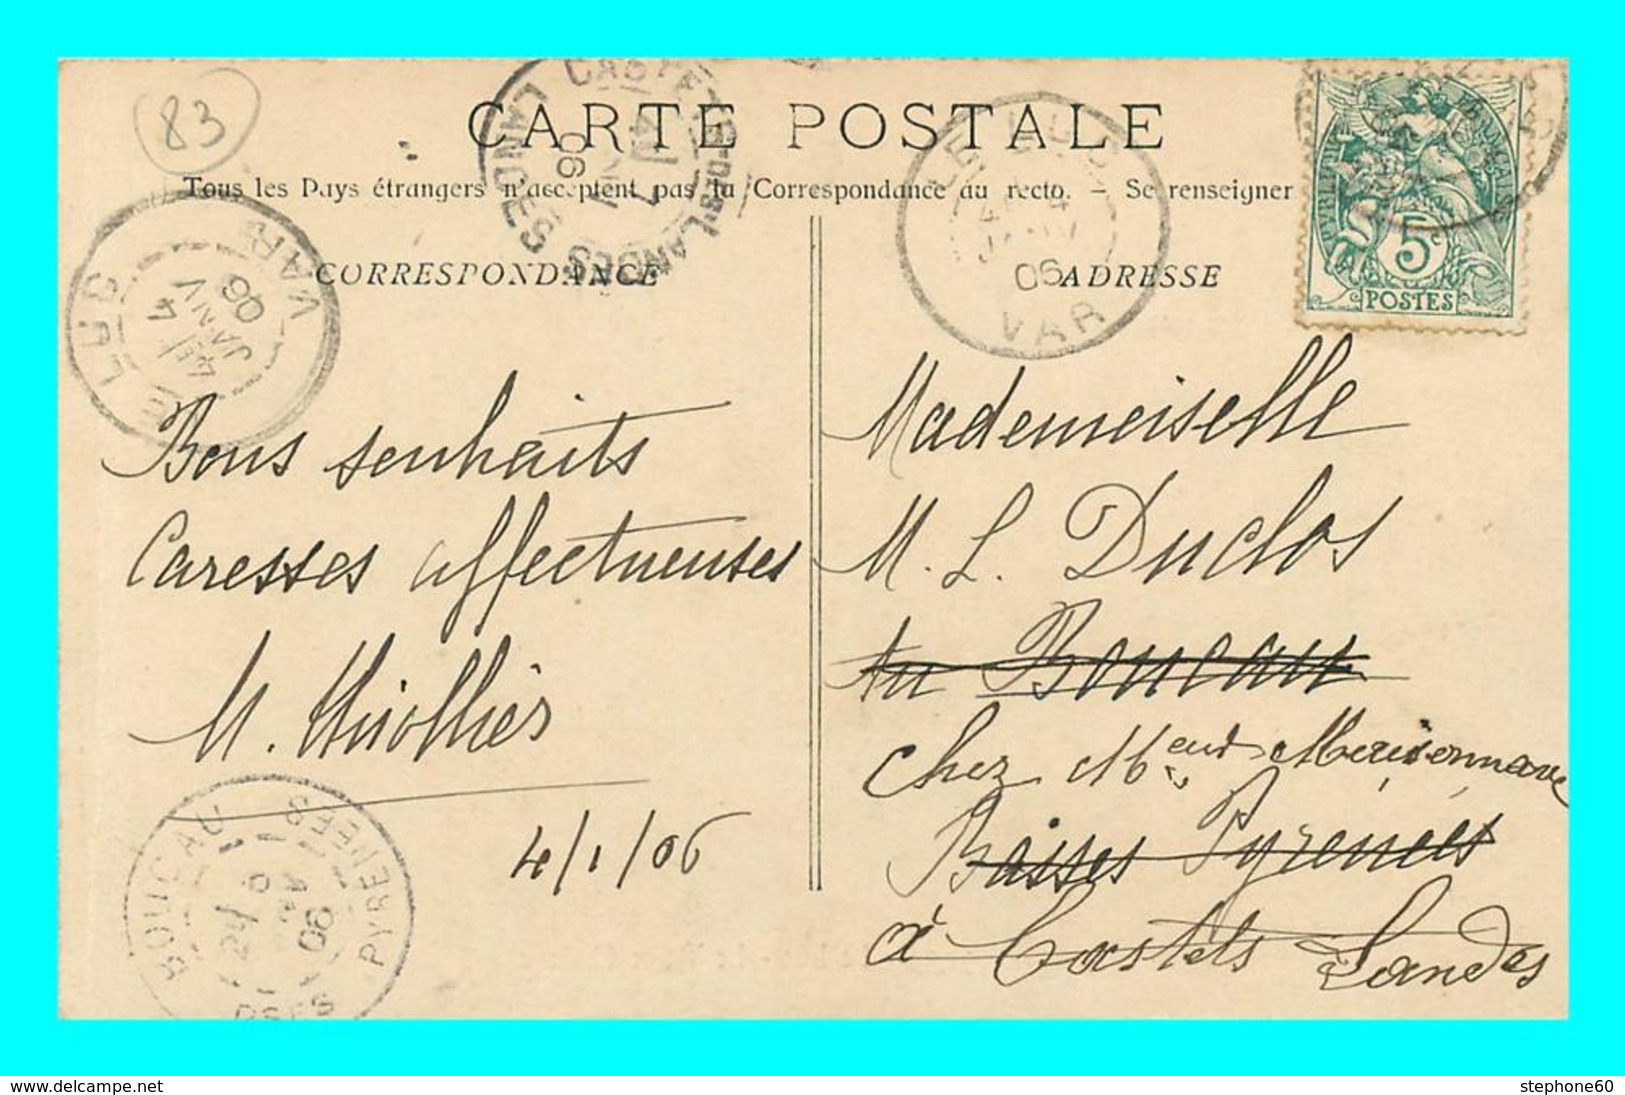 83
CARTE POSTALE
Tous les Pays étrangers n'acceptent pas la Correspondance au recto. – Se renseigner
CORRESPONDANCE
ADRESSE
LANDES
VAR
06
VAR
4
JANV
06
BOUCAU
PYRENEES
06
RÉPUBLIQUE FRANÇAISE
5c
POSTES
Bons souhaits
Caresses affectueuses
M. Miollis
4/1/06
Mademoiselle
M. L. Duclos
Au Boucau
Chez Mr
Basses Pyrenées
à Castets Landes
www.delcampe.net
stephone60